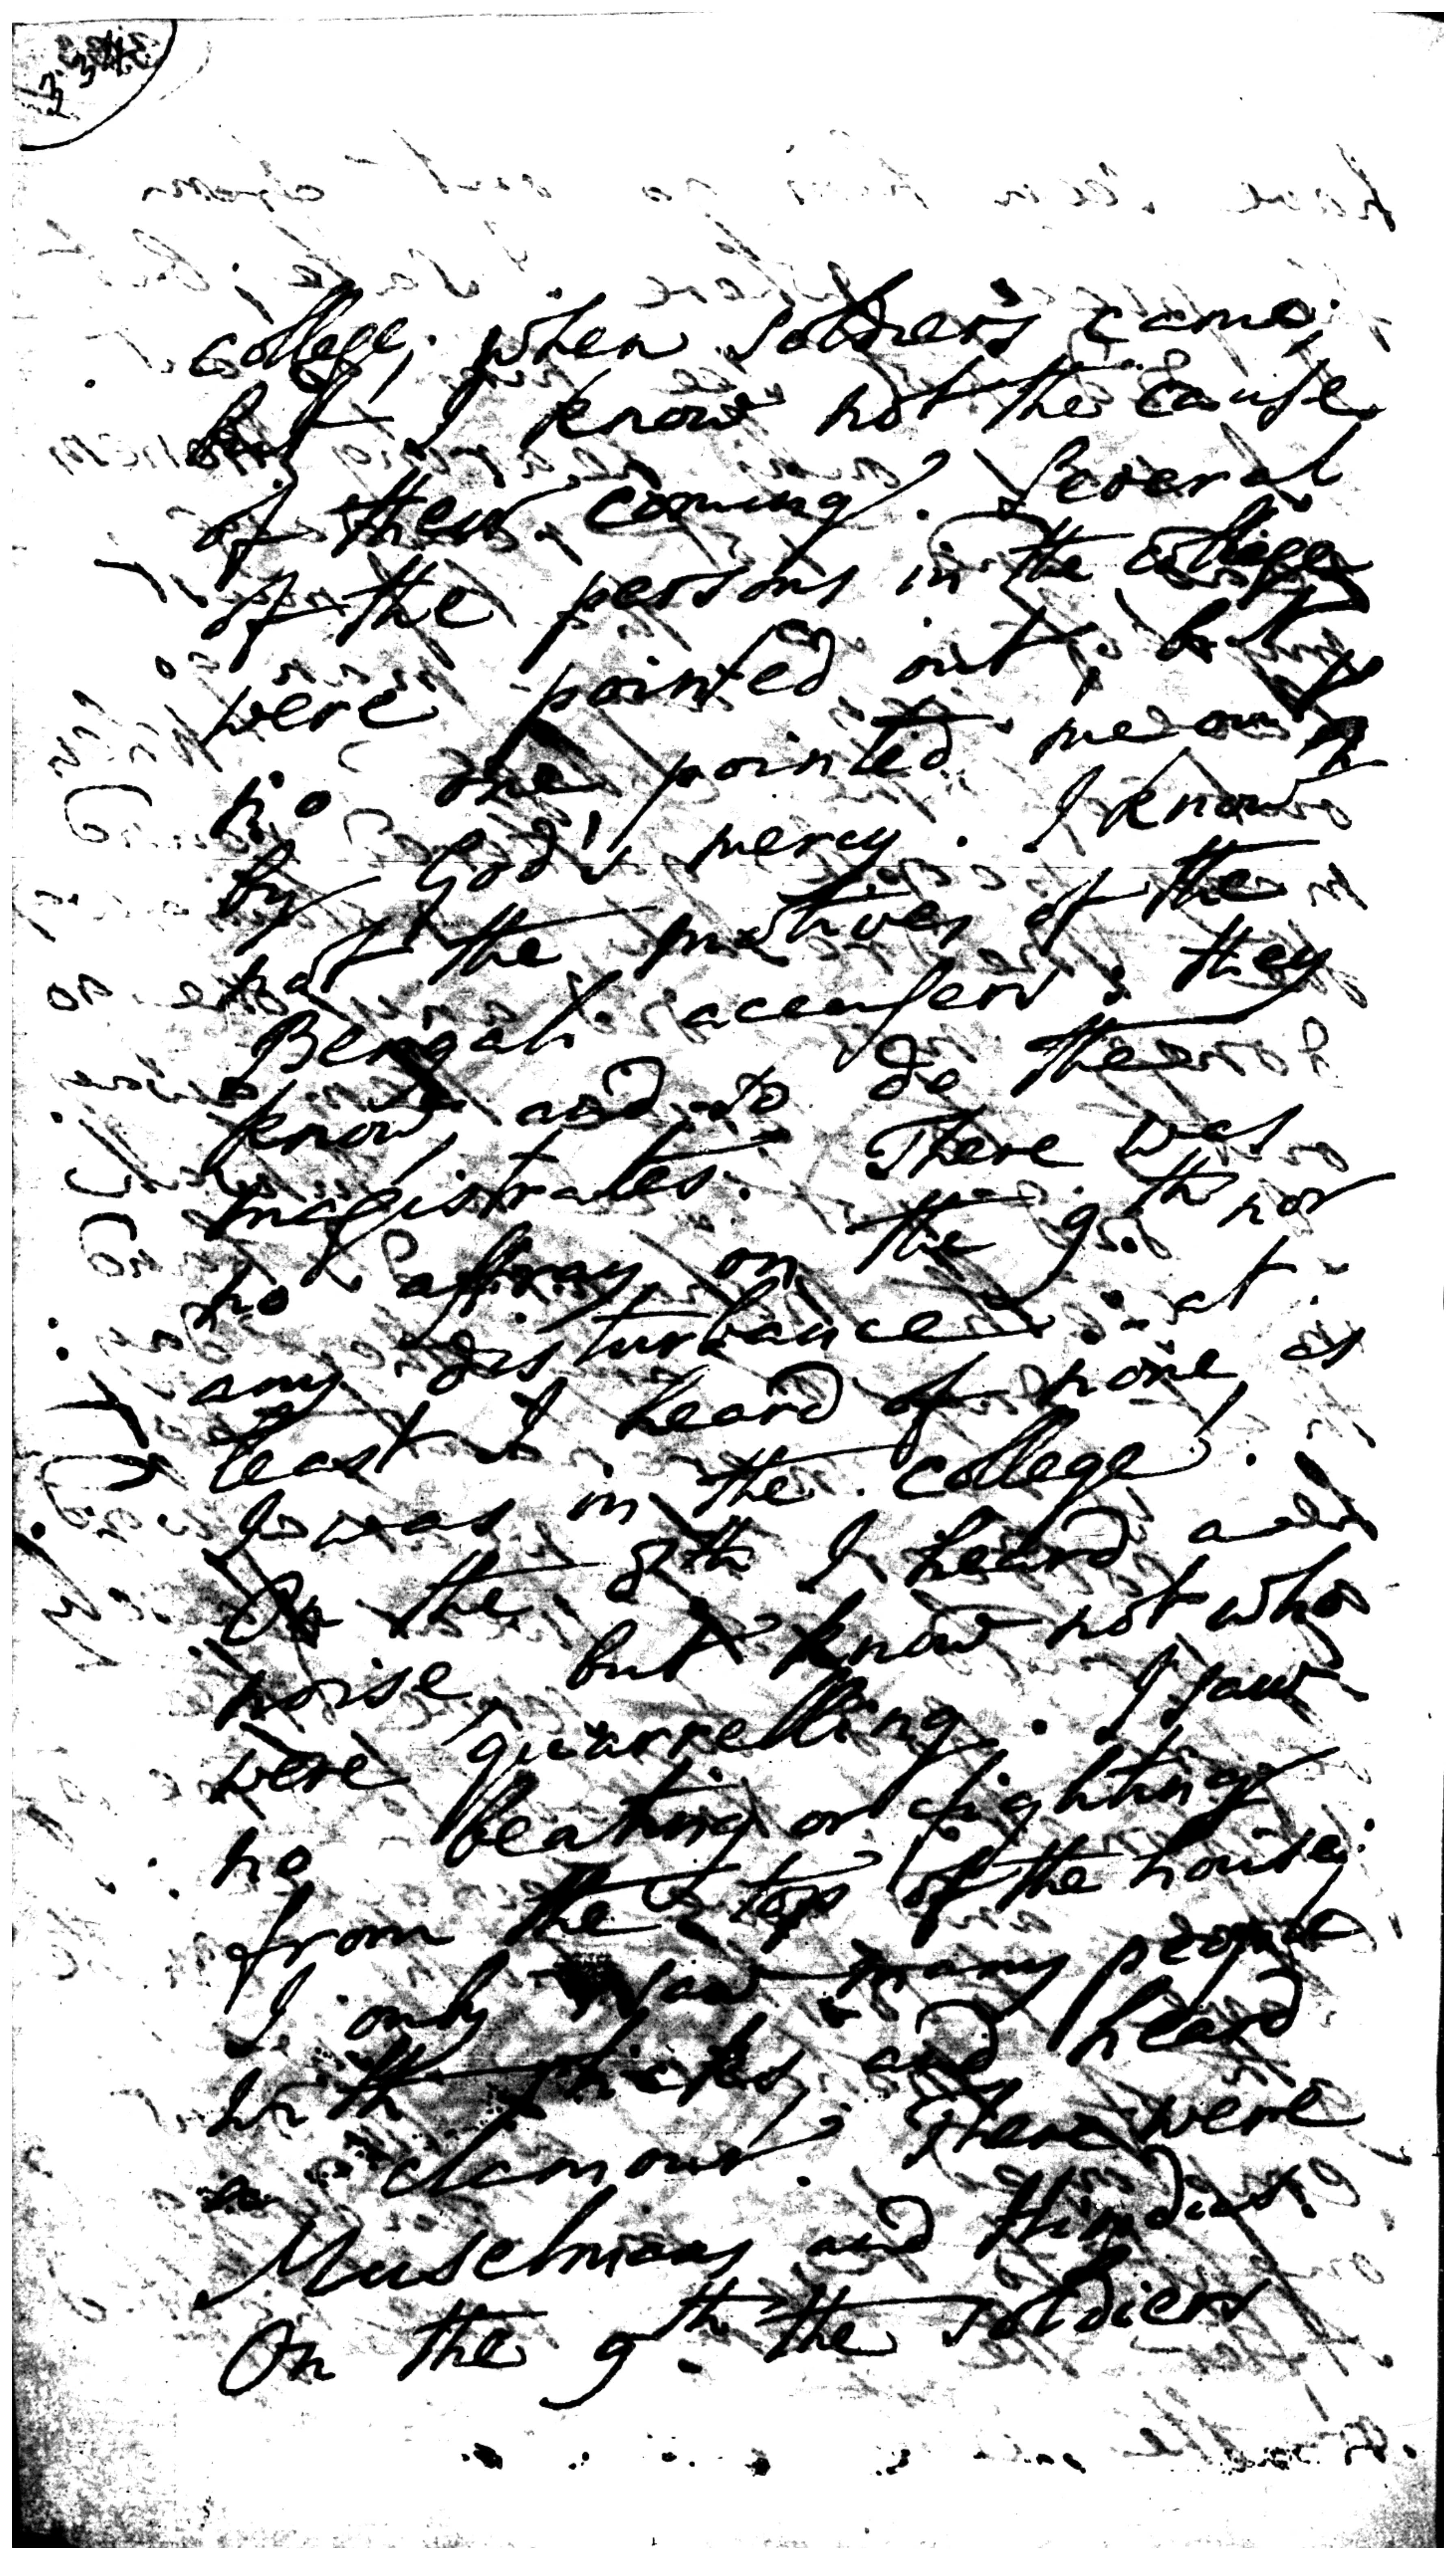 college, when soldiers came;
but I know not the cause
of their coming. Several
of the persons in the college
were pointed out; but
no one pointed me out
by God's mercy. I know
not the motives of the
Bengali accusers; they
know, and so do the
magistrates. There was
no affray on the 9.th nor
any disturbance: at
least I heard of none, as
I was in the college.
On the 8th I heard a
noise, but know not who
were quarrelling. I saw
no beating or fighting
from the top of the house:
I only saw many people
with sticks, and heard
a clamour. There were
Muselmans and Hindus.
On the 9th the soldiers